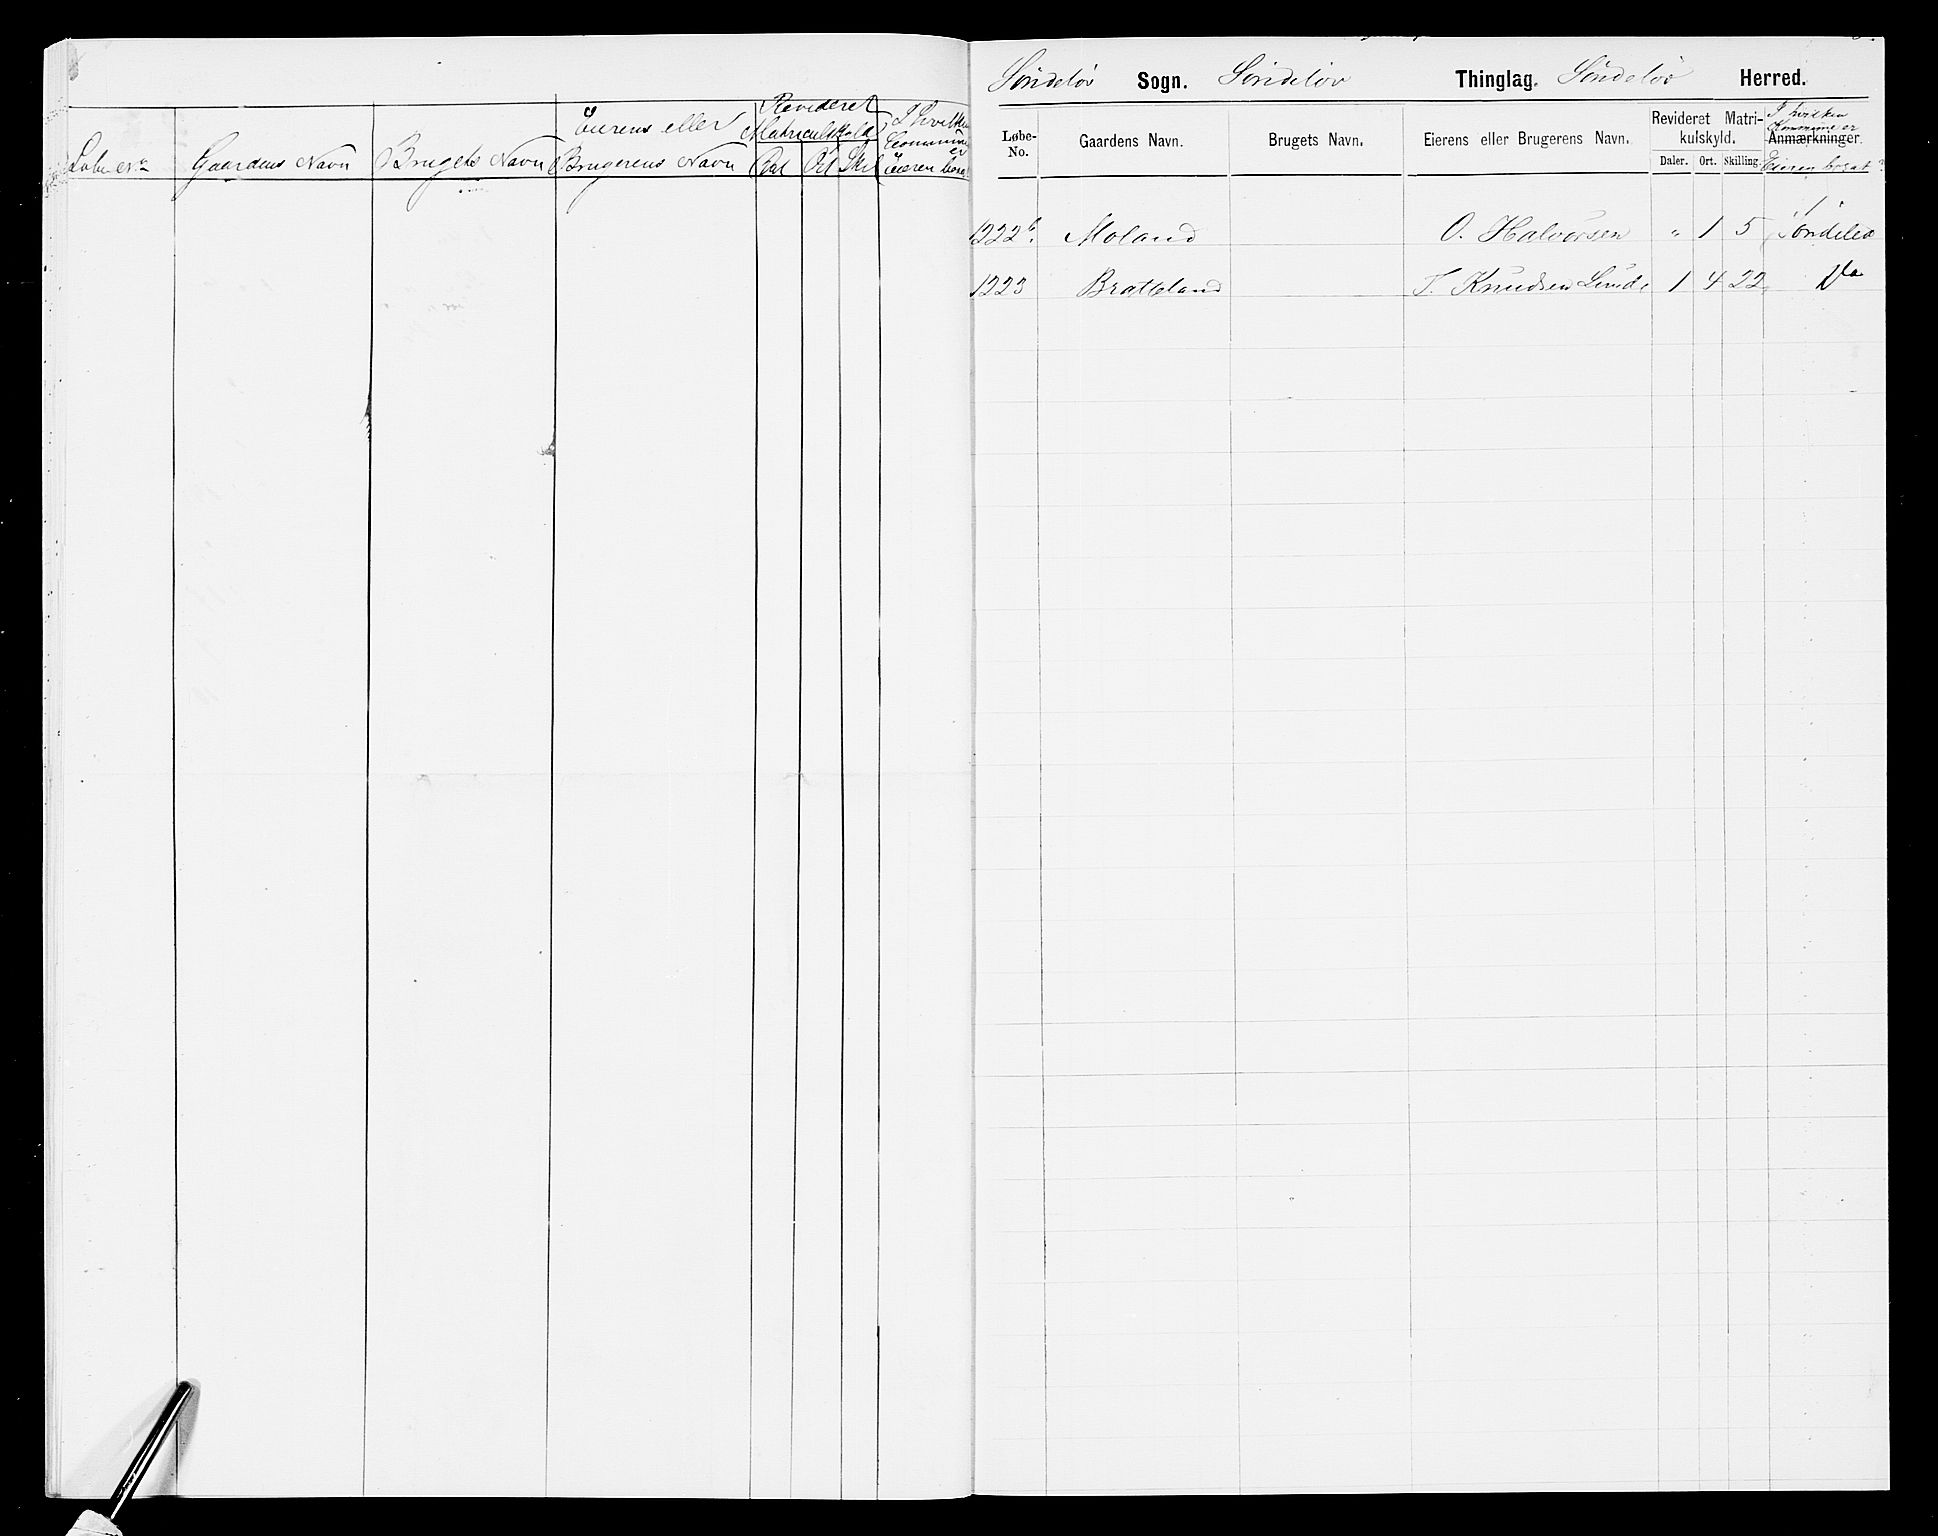 Eierens eller
Revideret
Matriculskyld
I hvilken
Commune
er
Eieren bosat
Løbe No Gaardens Navn Brugets Navn Brugerens Navn Dal Ort Skil
Søndeløv Sogn. Søndeløv Thinglag. Søndeløv Herred.
Løbe-No. Gaardens Navn. Brugets Navn. Eierens eller Brugerens Navn. Revideret Matrikulskyld. Anmærkninger.
I hvilken
Kommune er
Eieren bosat?
Daler. Ort. Skilling.
1222b. Moland O. Halvorsen " 1 5 Søndeleo
1223 Bratteland T. Knudsen Lunde 1 4 22